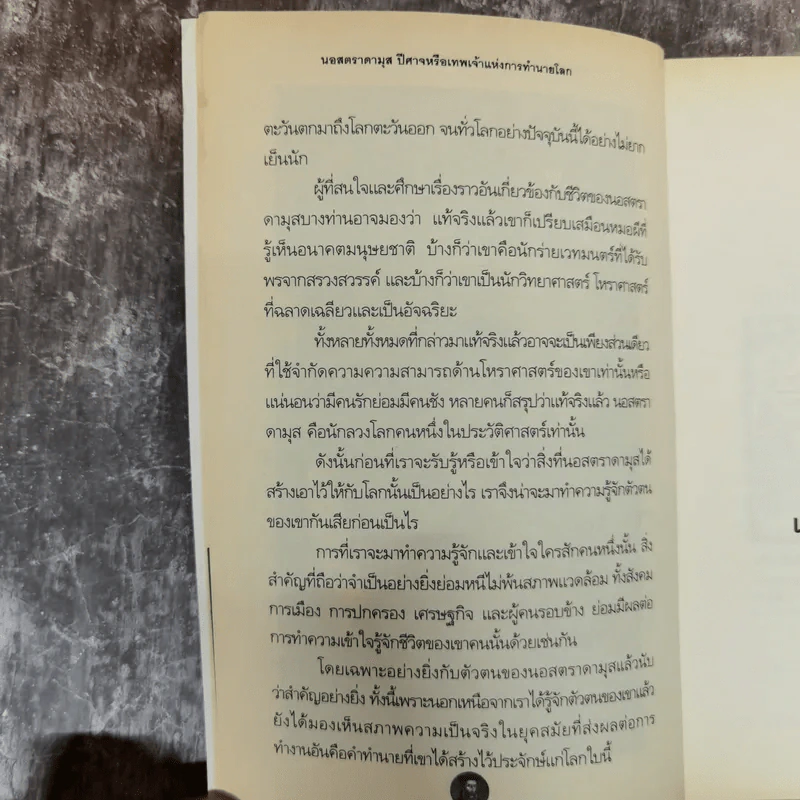 นอสตราดามุส ปีศาจหรือเทพเจ้าแห่งการทำนายโลก
ตะวันตกมาถึงโลกตะวันออก จนทั่วโลกอย่างปัจจุบันนี้ได้อย่างไม่ยาก
เย็นนัก
ผู้ที่สนใจและศึกษาเรื่องราวอันเกี่ยวข้องกับชีวิตของนอสตรา
ดามุสบางท่านอาจมองว่า แท้จริงแล้วเขาก็เปรียบเสมือนหมอผีที่
รู้เห็นอนาคตมนุษยชาติ บ้างก็ว่าเขาคือนักร่ายเวทมนตร์ที่ได้รับ
พรจากสรวงสวรรค์ และบ้างก็ว่าเขาเป็นนักวิทยาศาสตร์ โหราศาสตร์
ที่ฉลาดเฉลียวและเป็นอัจฉริยะ
ทั้งหลายทั้งหมดที่กล่าวมาแท้จริงแล้วอาจจะเป็นเพียงส่วนเดียว
ที่ใช้จำกัดความความสามารถด้านโหราศาสตร์ของเขาเท่านั้นหรือ
แน่นอนว่ามีคนรักย่อมมีคนชัง หลายคนก็สรุปว่าแท้จริงแล้ว นอสตรา
ดามุส คือนักลวงโลกคนหนึ่งในประวัติศาสตร์เท่านั้น
ดังนั้นก่อนที่เราจะรับรู้หรือเข้าใจว่าสิ่งที่นอสตราดามุสได้
สร้างเอาไว้ให้กับโลกนั้นเป็นอย่างไร เราจึงน่าจะมาทำความรู้จักตัวตน
ของเขากันเสียก่อนเป็นไร
การที่เราจะมาทำความรู้จักและเข้าใจใครสักคนหนึ่งนั้น สิ่ง
สำคัญที่ถือว่าจำเป็นอย่างยิ่งย่อมหนีไม่พ้นสภาพแวดล้อม ทั้งสังคม
การเมือง การปกครอง เศรษฐกิจ และผู้คนรอบข้าง ย่อมมีผลต่อ
การทำความเข้าใจรู้จักชีวิตของเขาคนนั้นด้วยเช่นกัน
โดยเฉพาะอย่างยิ่งกับตัวตนของนอสตราดามุสแล้วนับ
ว่าสำคัญอย่างยิ่ง ทั้งนี้เพราะนอกเหนือจากเราได้รู้จักตัวตนของเขาแล้ว
ยังได้มองเห็นสภาพความเป็นจริงในยุคสมัยที่ส่งผลต่อการ
ทำงานอันคือคำทำนายที่เขาได้สร้างไว้ประจักษ์แก่โลกใบนี้